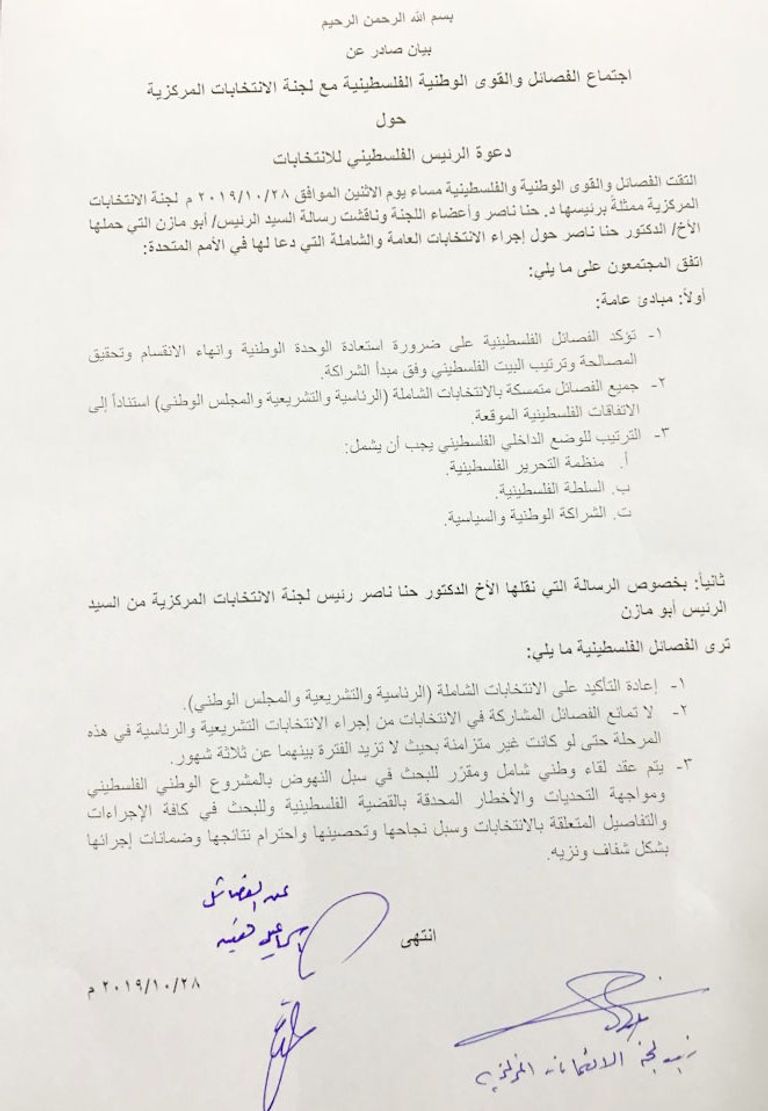 بسم الله الرحمن الرحيم
بيان صادر عن
اجتماع الفصائل والقوى الوطنية الفلسطينية مع لجنة الانتخابات المركزية
حول
دعوة الرئيس الفلسطيني للانتخابات
التقت الفصائل والقوى الوطنية والفلسطينية مساء يوم الاثنين الموافق ٢٠١٩/١٠/٢٨ م لجنة الانتخابات
المركزية ممثلةً برئيسها د. حنا ناصر وأعضاء اللجنة وناقشت رسالة السيد الرئيس/ أبو مازن التي حملها
الأخ/ الدكتور حنا ناصر حول إجراء الانتخابات العامة والشاملة التي دعا لها في الأمم المتحدة:
اتفق المجتمعون على ما يلي:
أولاً: مبادئ عامة:
١- تؤكد الفصائل الفلسطينية على ضرورة استعادة الوحدة الوطنية وانهاء الانقسام وتحقيق
المصالحة وترتيب البيت الفلسطيني وفق مبدأ الشراكة.
٢- جميع الفصائل متمسكة بالانتخابات الشاملة (الرئاسية والتشريعية والمجلس الوطني) استناداً إلى
الاتفاقات الفلسطينية الموقعة.
٣- الترتيب للوضع الداخلي الفلسطيني يجب أن يشمل:
أ. منظمة التحرير الفلسطينية.
ب. السلطة الفلسطينية.
ت. الشراكة الوطنية والسياسية.
ثانياً: بخصوص الرسالة التي نقلها الأخ الدكتور حنا ناصر رئيس لجنة الانتخابات المركزية من السيد
الرئيس أبو مازن
ترى الفصائل الفلسطينية ما يلي:
١- إعادة التأكيد على الانتخابات الشاملة (الرئاسية والتشريعية والمجلس الوطني).
٢- لا تمانع الفصائل المشاركة في الانتخابات من إجراء الانتخابات التشريعية والرئاسية في هذه
المرحلة حتى لو كانت غير متزامنة بحيث لا تزيد الفترة بينهما عن ثلاثة شهور.
٣- يتم عقد لقاء وطني شامل ومقرّر للبحث في سبل النهوض بالمشروع الوطني الفلسطيني
ومواجهة التحديات والأخطار المحدقة بالقضية الفلسطينية وللبحث في كافة الإجراءات
والتفاصيل المتعلقة بالانتخابات وسبل نجاحها وتحصينها واحترام نتائجها وضمانات إجرائها
بشكل شفاف ونزيه.
عن الفصائل
اسماعيل هنية
انتهى
٢٠١٩/١٠/٢٨ م
رئيس لجنة الانتخابات المركزية